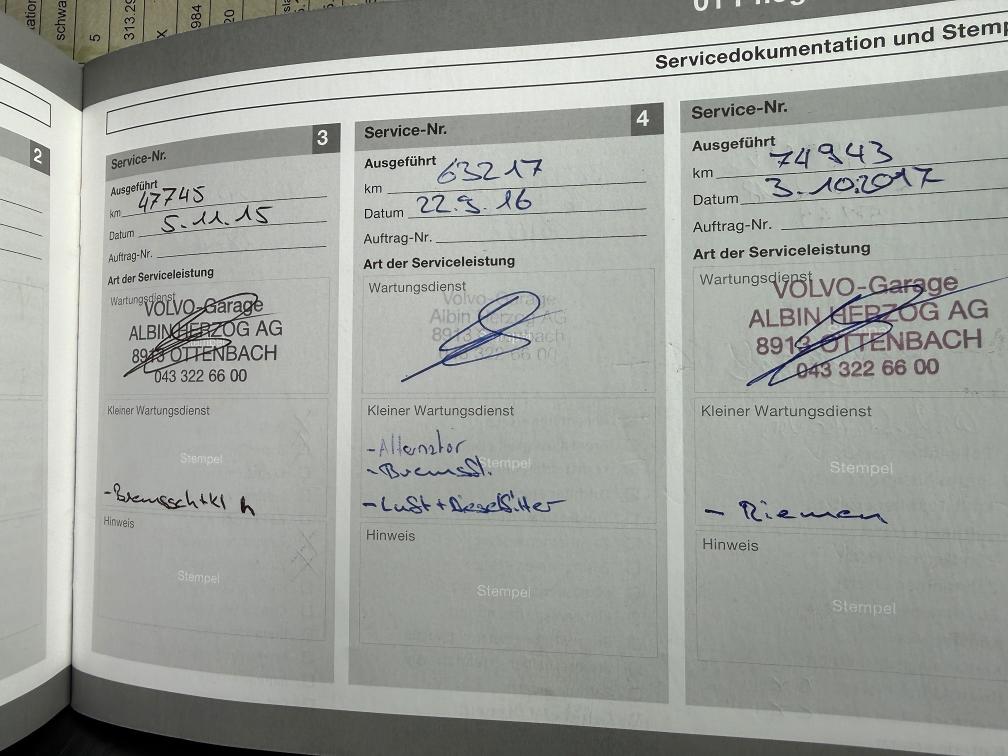 Servicedokumentation und Stemp
2
Service-Nr. 3
Ausgeführt
km 47745
Datum 5.11.15
Auftrag-Nr.
Art der Serviceleistung
Wartungsdienst
VOLVO-Garage
ALBIN HERZOG AG
8913 OTTENBACH
043 322 66 00
Kleiner Wartungsdienst
Stempel
Hinweis
Stempel
Service-Nr. 4
Ausgeführt
km 63217
Datum 22.9.16
Auftrag-Nr.
Art der Serviceleistung
Wartungsdienst
Volvo-Garage
Albin Herzog AG
8913 Ottenbach
043 322 66 00
Kleiner Wartungsdienst
- Alternator
Stempel
- Bremsfl.
- Luft + Dieselfilter
Hinweis
Stempel
Service-Nr.
Ausgeführt
km 74943
Datum 3.10.2017
Auftrag-Nr.
Art der Serviceleistung
Wartungsdienst
VOLVO-Garage
ALBIN HERZOG AG
8913 OTTENBACH
043 322 66 00
Kleiner Wartungsdienst
Stempel
- Riemen
Hinweis
Stempel
schwa
5
313.29
X
984
20